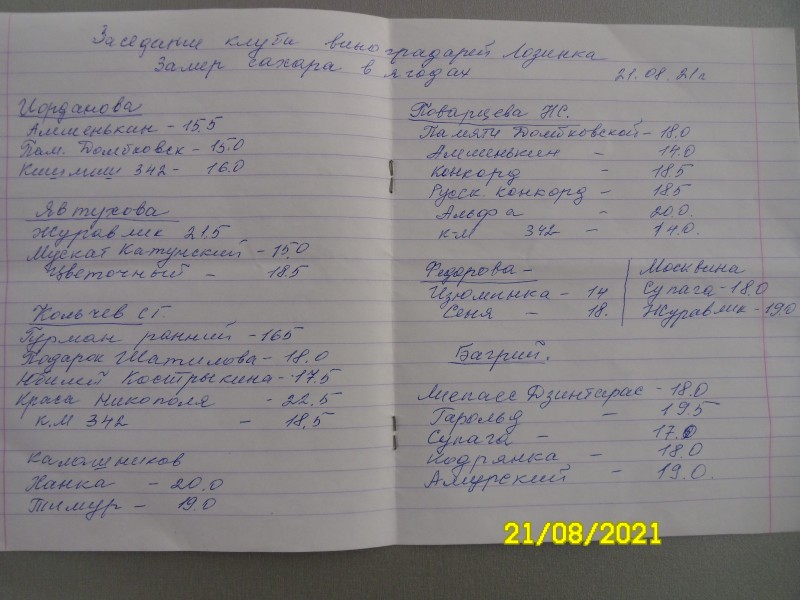 Заседание клуба виноградарей Лозинка
Замер сахара в ягодах
21.08.21г
Иорданова
Алешенькин - 15.5
Пам. Домбковск - 15.0
Кишмиш 342 - 16.0
Явтухова
Журавлик 21.5
Мускат Катунский - 15.0
Цветочный - 18.5
Кольчев С.Г.
Гурман ранний - 16.5
Подарок Шатилова - 18.0
Юбилей КостRыкина - 17.5
Краса Никополя - 22.5
К.М 342 - 18.5
Калашников
Ханка - 20.0
Тимур - 19.0
Поварцева Н.С.
Памяти Домбковской - 18.0
Алешенькин - 14.0
Конкорд - 18.5
Русск. конкорд - 18.5
Альфа - 20.0.
к-м 342 - 14.0.
Федорова -
Изюминка - 14
Сеня - 18.
Москвина
Супага - 18.0
Журавлик - 19.0
Багрий.
Лиепаес Дзинтарас - 18.0
Гарольд - 19.5
Супага - 17.0
Подрянка - 18.0
Амурский - 19.0.
21/08/2021